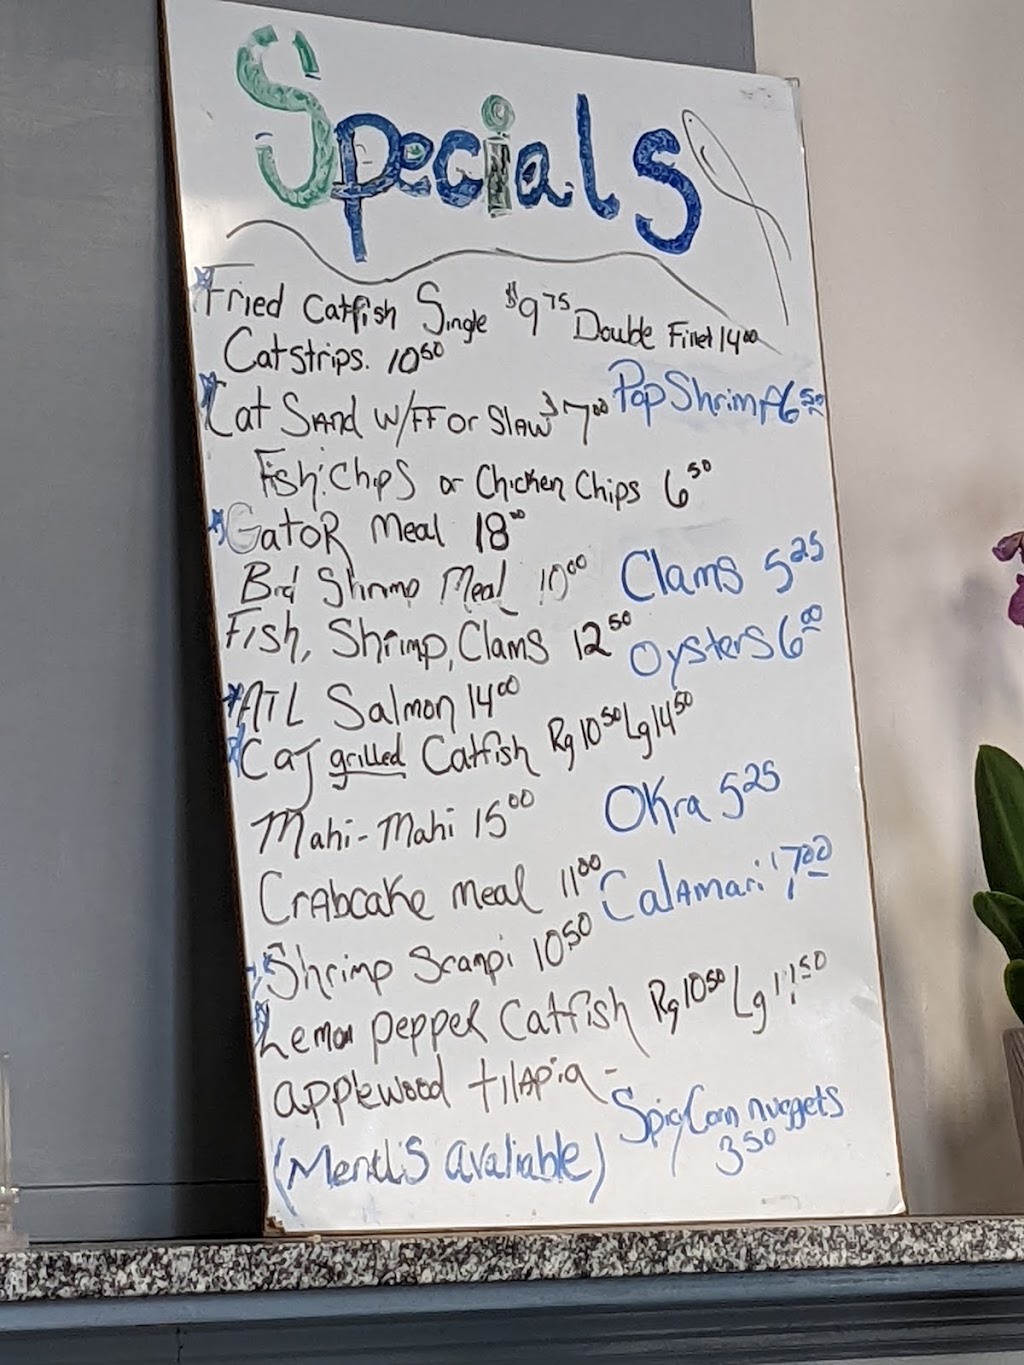 Specials
Fried Catfish Single $9 75 Double Fillet 14 00
Catstrips. 10 50
Cat Sand w/FF or Slaw $7 00 Pop Shrimp 6 50
Fish! Chips or Chicken Chips 6 50
Gator Meal 18 00
Brd Shrimp Meal 10 00 Clams 5 25
Fish, Shrimp, Clams 12 50 Oysters 6 00
ATL Salmon 14 00
Caj grilled Catfish Rg 10 50 Lg 14 50
Mahi-Mahi 15 00 Okra 5 25
Crabcake meal 11 00 Calamari 7 00
Shrimp Scampi 10 50
Lemon pepper Catfish Rg 10 50 Lg
applewood tilapia -
Spicy Corn nuggets 3 50
(Menu's avaliable)